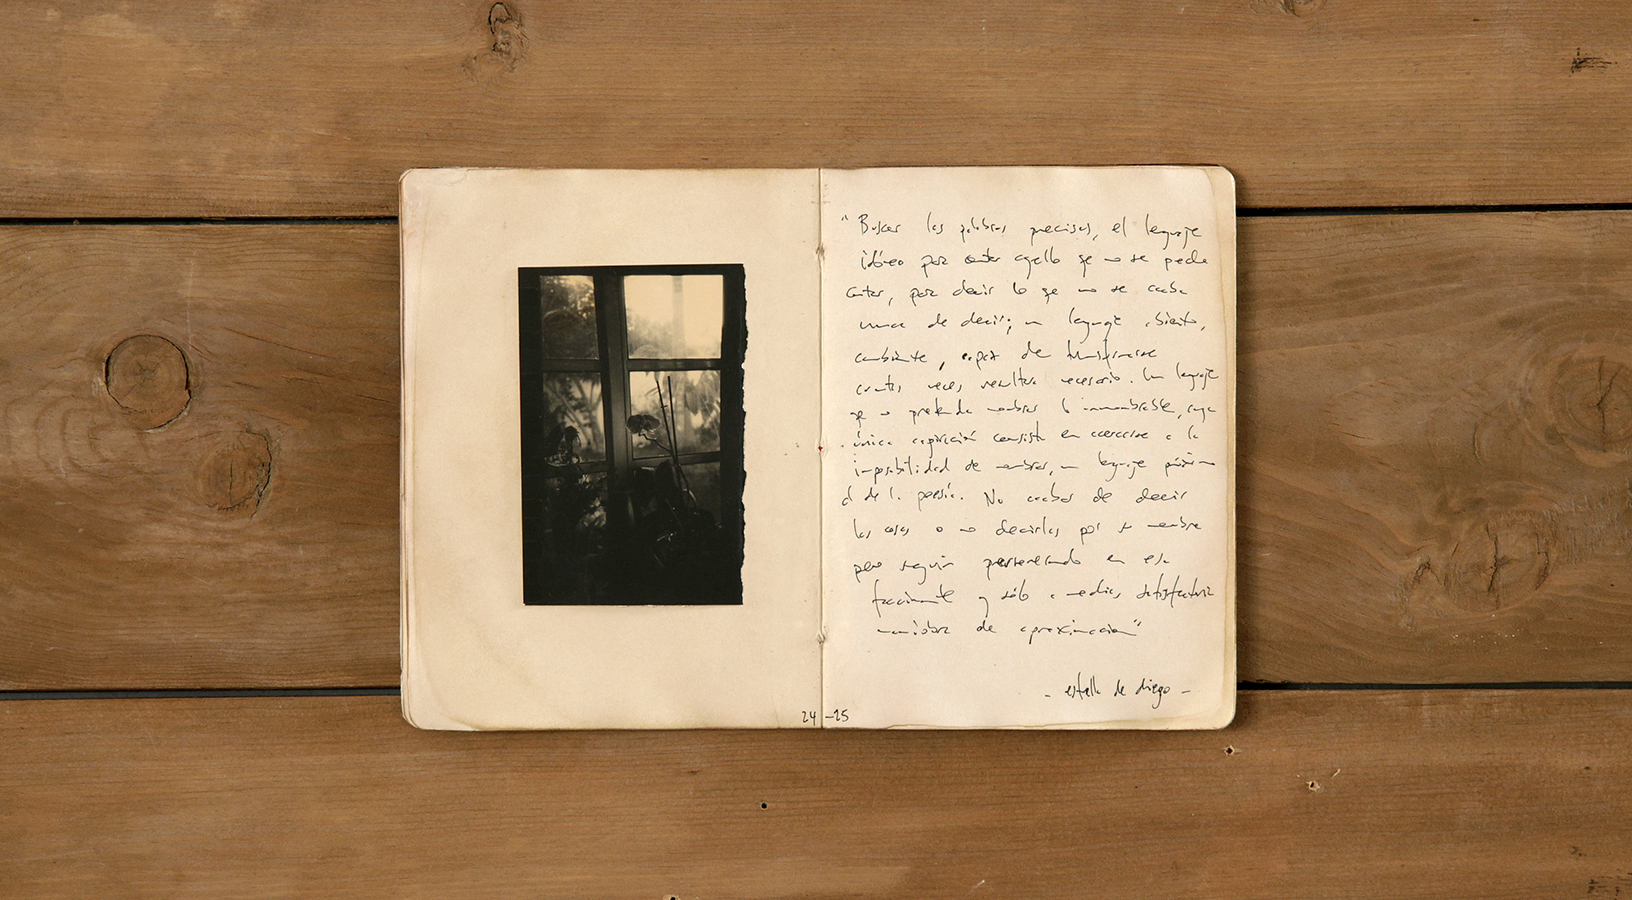 "Buscar las palabras precisas, el lenguaje
idóneo para contar aquello que no se puede
contar, para decir lo que no se acaba
nunca de decir; un lenguaje abierto,
cambiante, capaz de transformarse
cuantas veces resultara necesario. Un lenguaje
que no pretenda nombrar lo innombrable, cuya
única aspiración consista en acercarse a la
imposibilidad de nombrar, un lenguaje próximo
al de la poesía. No acabar de decir
las cosas o no decirlas por su nombre
pero seguir perseverando en esa
fascinante y sólo a medias satisfactoria
maniobra de aproximación"
- estrella de diego -
24 - 25